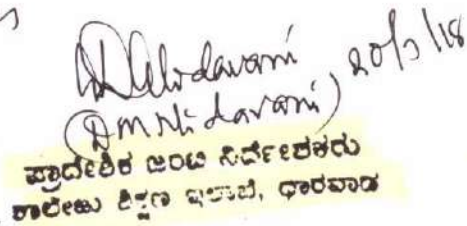 20/3/18
(D M Nidavani)
ಪ್ರಾದೇಶಿಕ ಜಂಟಿ ನಿರ್ದೇಶಕರು
ಕಾಲೇಜು ಶಿಕ್ಷಣ ಇಲಾಖೆ, ಧಾರವಾಡ